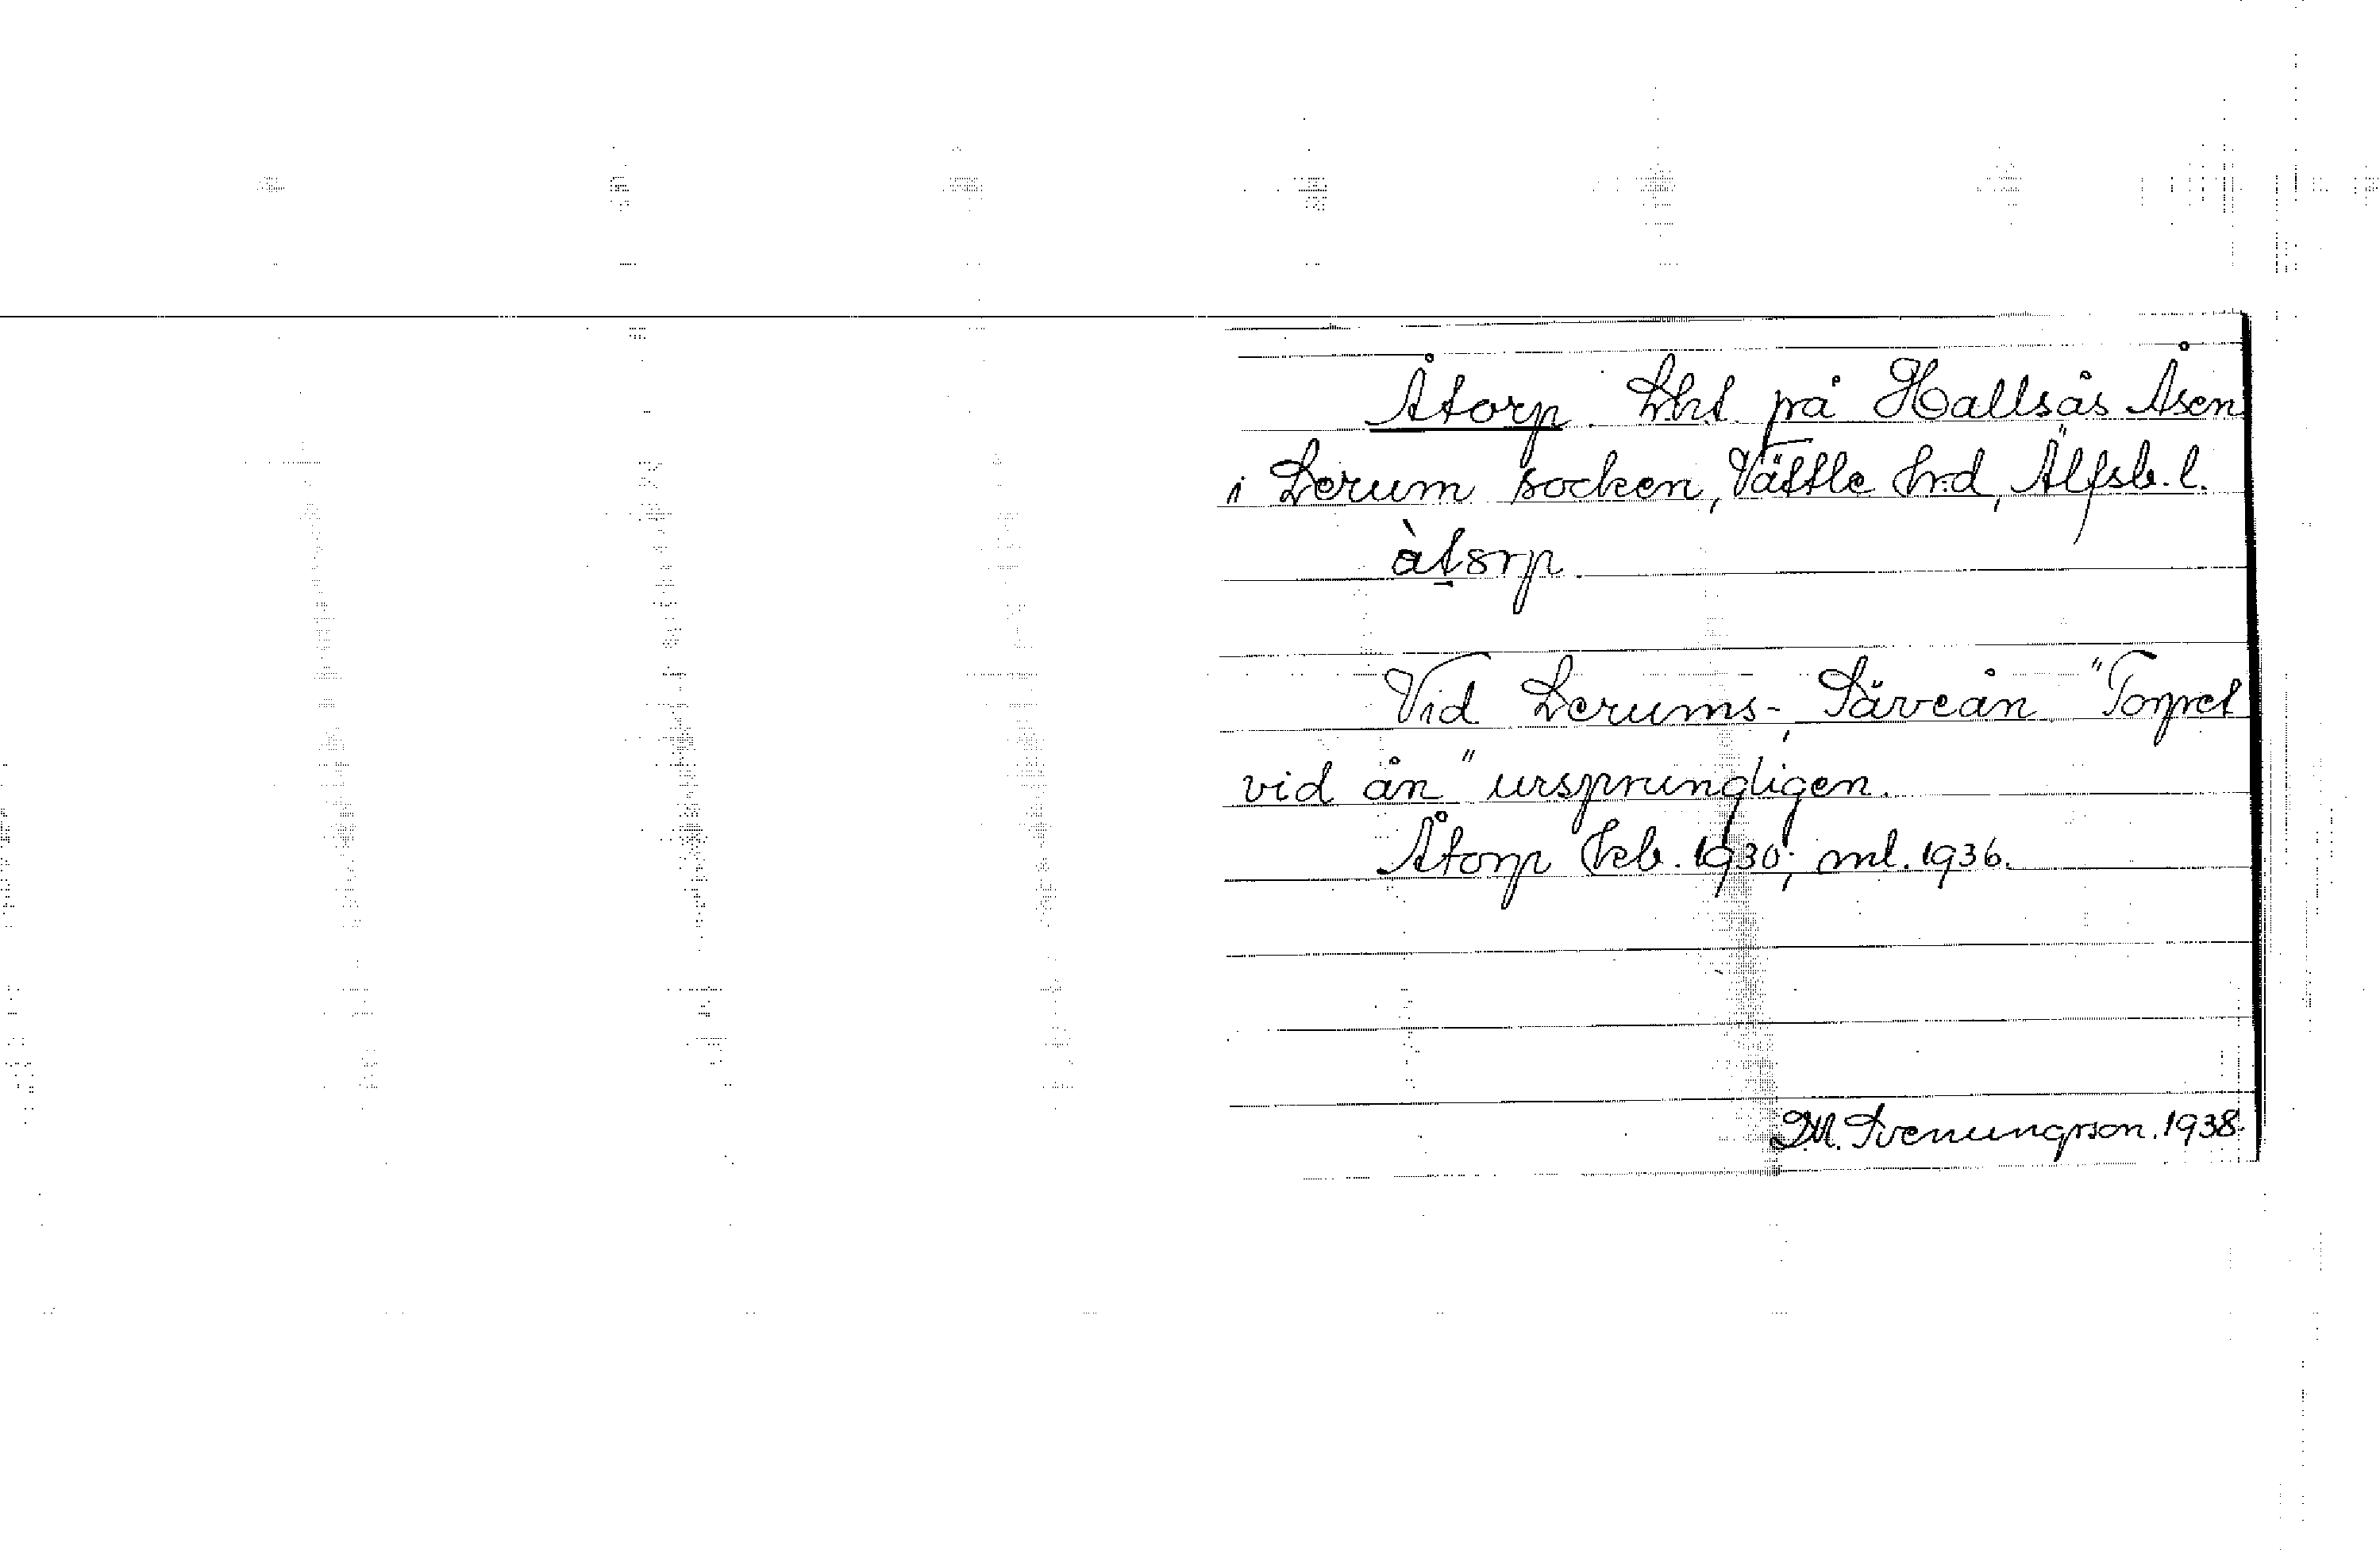 Åtorp. Lht. på Hallsås Åsen
i Lerum socken, Vättle hrd, Älfsb. l.
àtorp
Vid Lerums-, Säveån "Torpet
vid ån" ursprungligen.
Åtorp kb. 1930; ml. 1936.
D.M. Svenungsson. 1938.